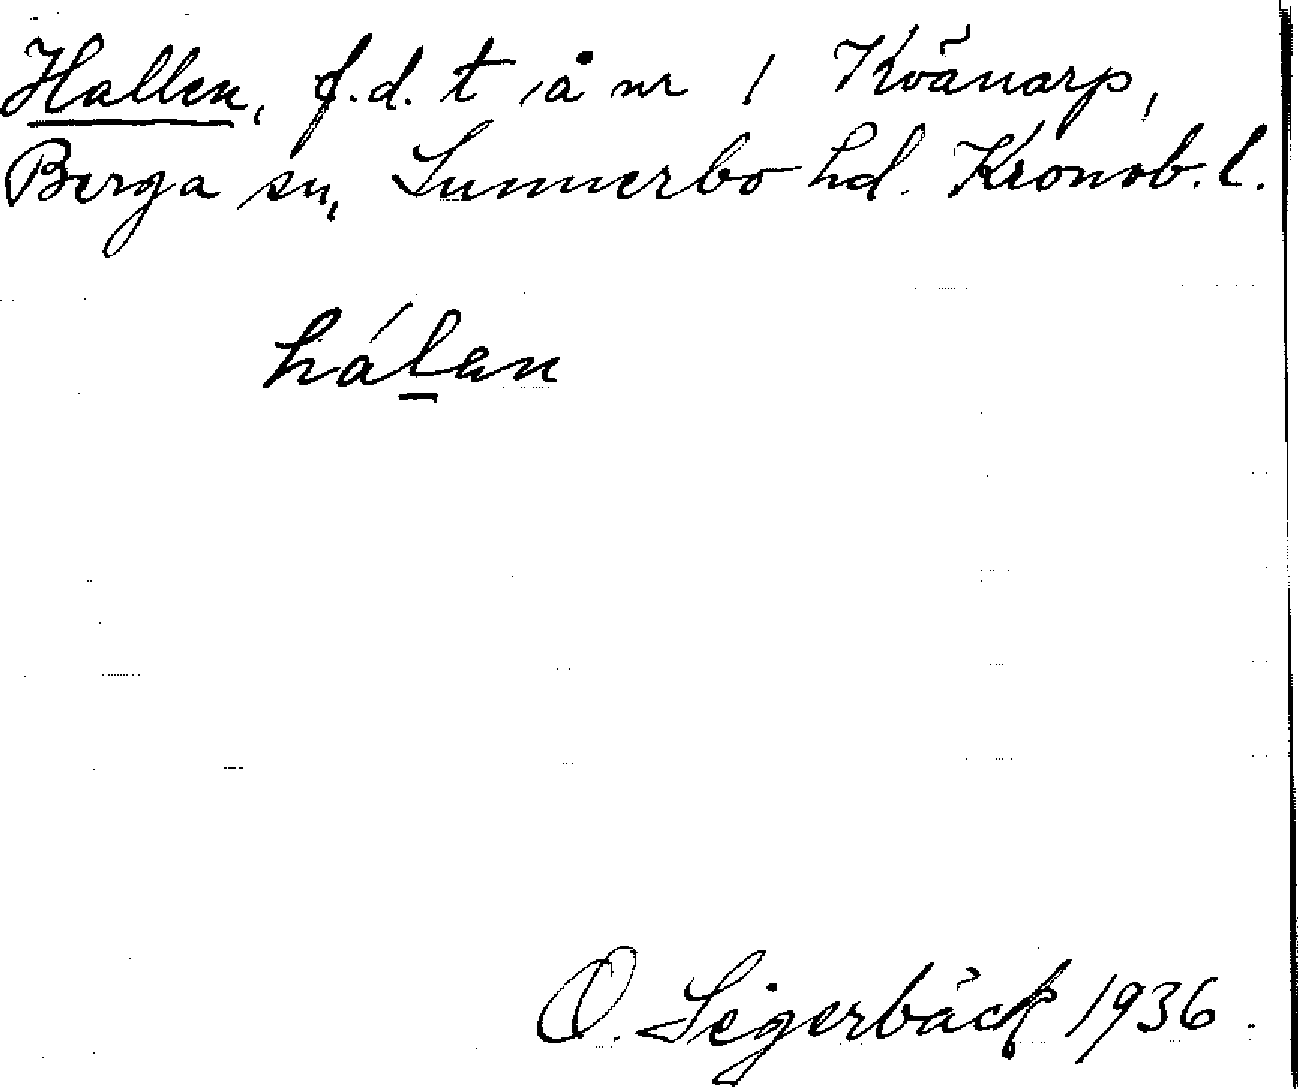 Hallen, f.d. t å nr 1 Kvänarp,
Berga sn, Sunnerbo hd. Kronob. l.
hálen
O. Segerbäck 1936.